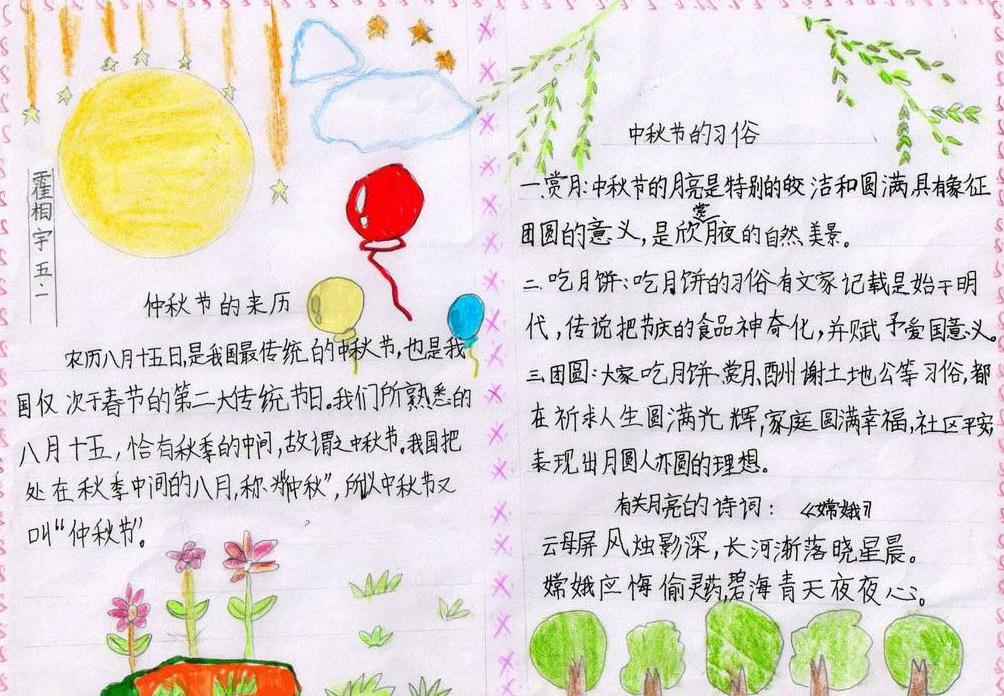 霍相宇 五.二
仲秋节的来历
农历八月十五日,是我国最传统的中秋节,也是我
国仅次于春节的第二大传统节日。我们所熟悉的
八月十五,恰有秋季的中间,故谓之中秋节。我国把
处在秋季中间的八月,称为“仲秋”,所以中秋节又
叫“仲秋节”。
中秋节的习俗
一.赏月:中秋节的月亮是特别的皎洁和圆满,具有象征
团圆的意义,是欣赏月夜的自然美景。
二.吃月饼:吃月饼的习俗有文家记载是始于明
代,传说把节庆的食品神奇化,并赋予爱国意义。
三.团圆:大家吃月饼、赏月,酬谢土地公等习俗,都
在祈求人生圆满光辉,家庭圆满幸福,社区平安
表现出月圆人亦圆的理想。
有关月亮的诗词: 《嫦娥》
云母屏风烛影深,长河渐落晓星晨。
嫦娥应悔偷灵药,碧海青天夜夜心。